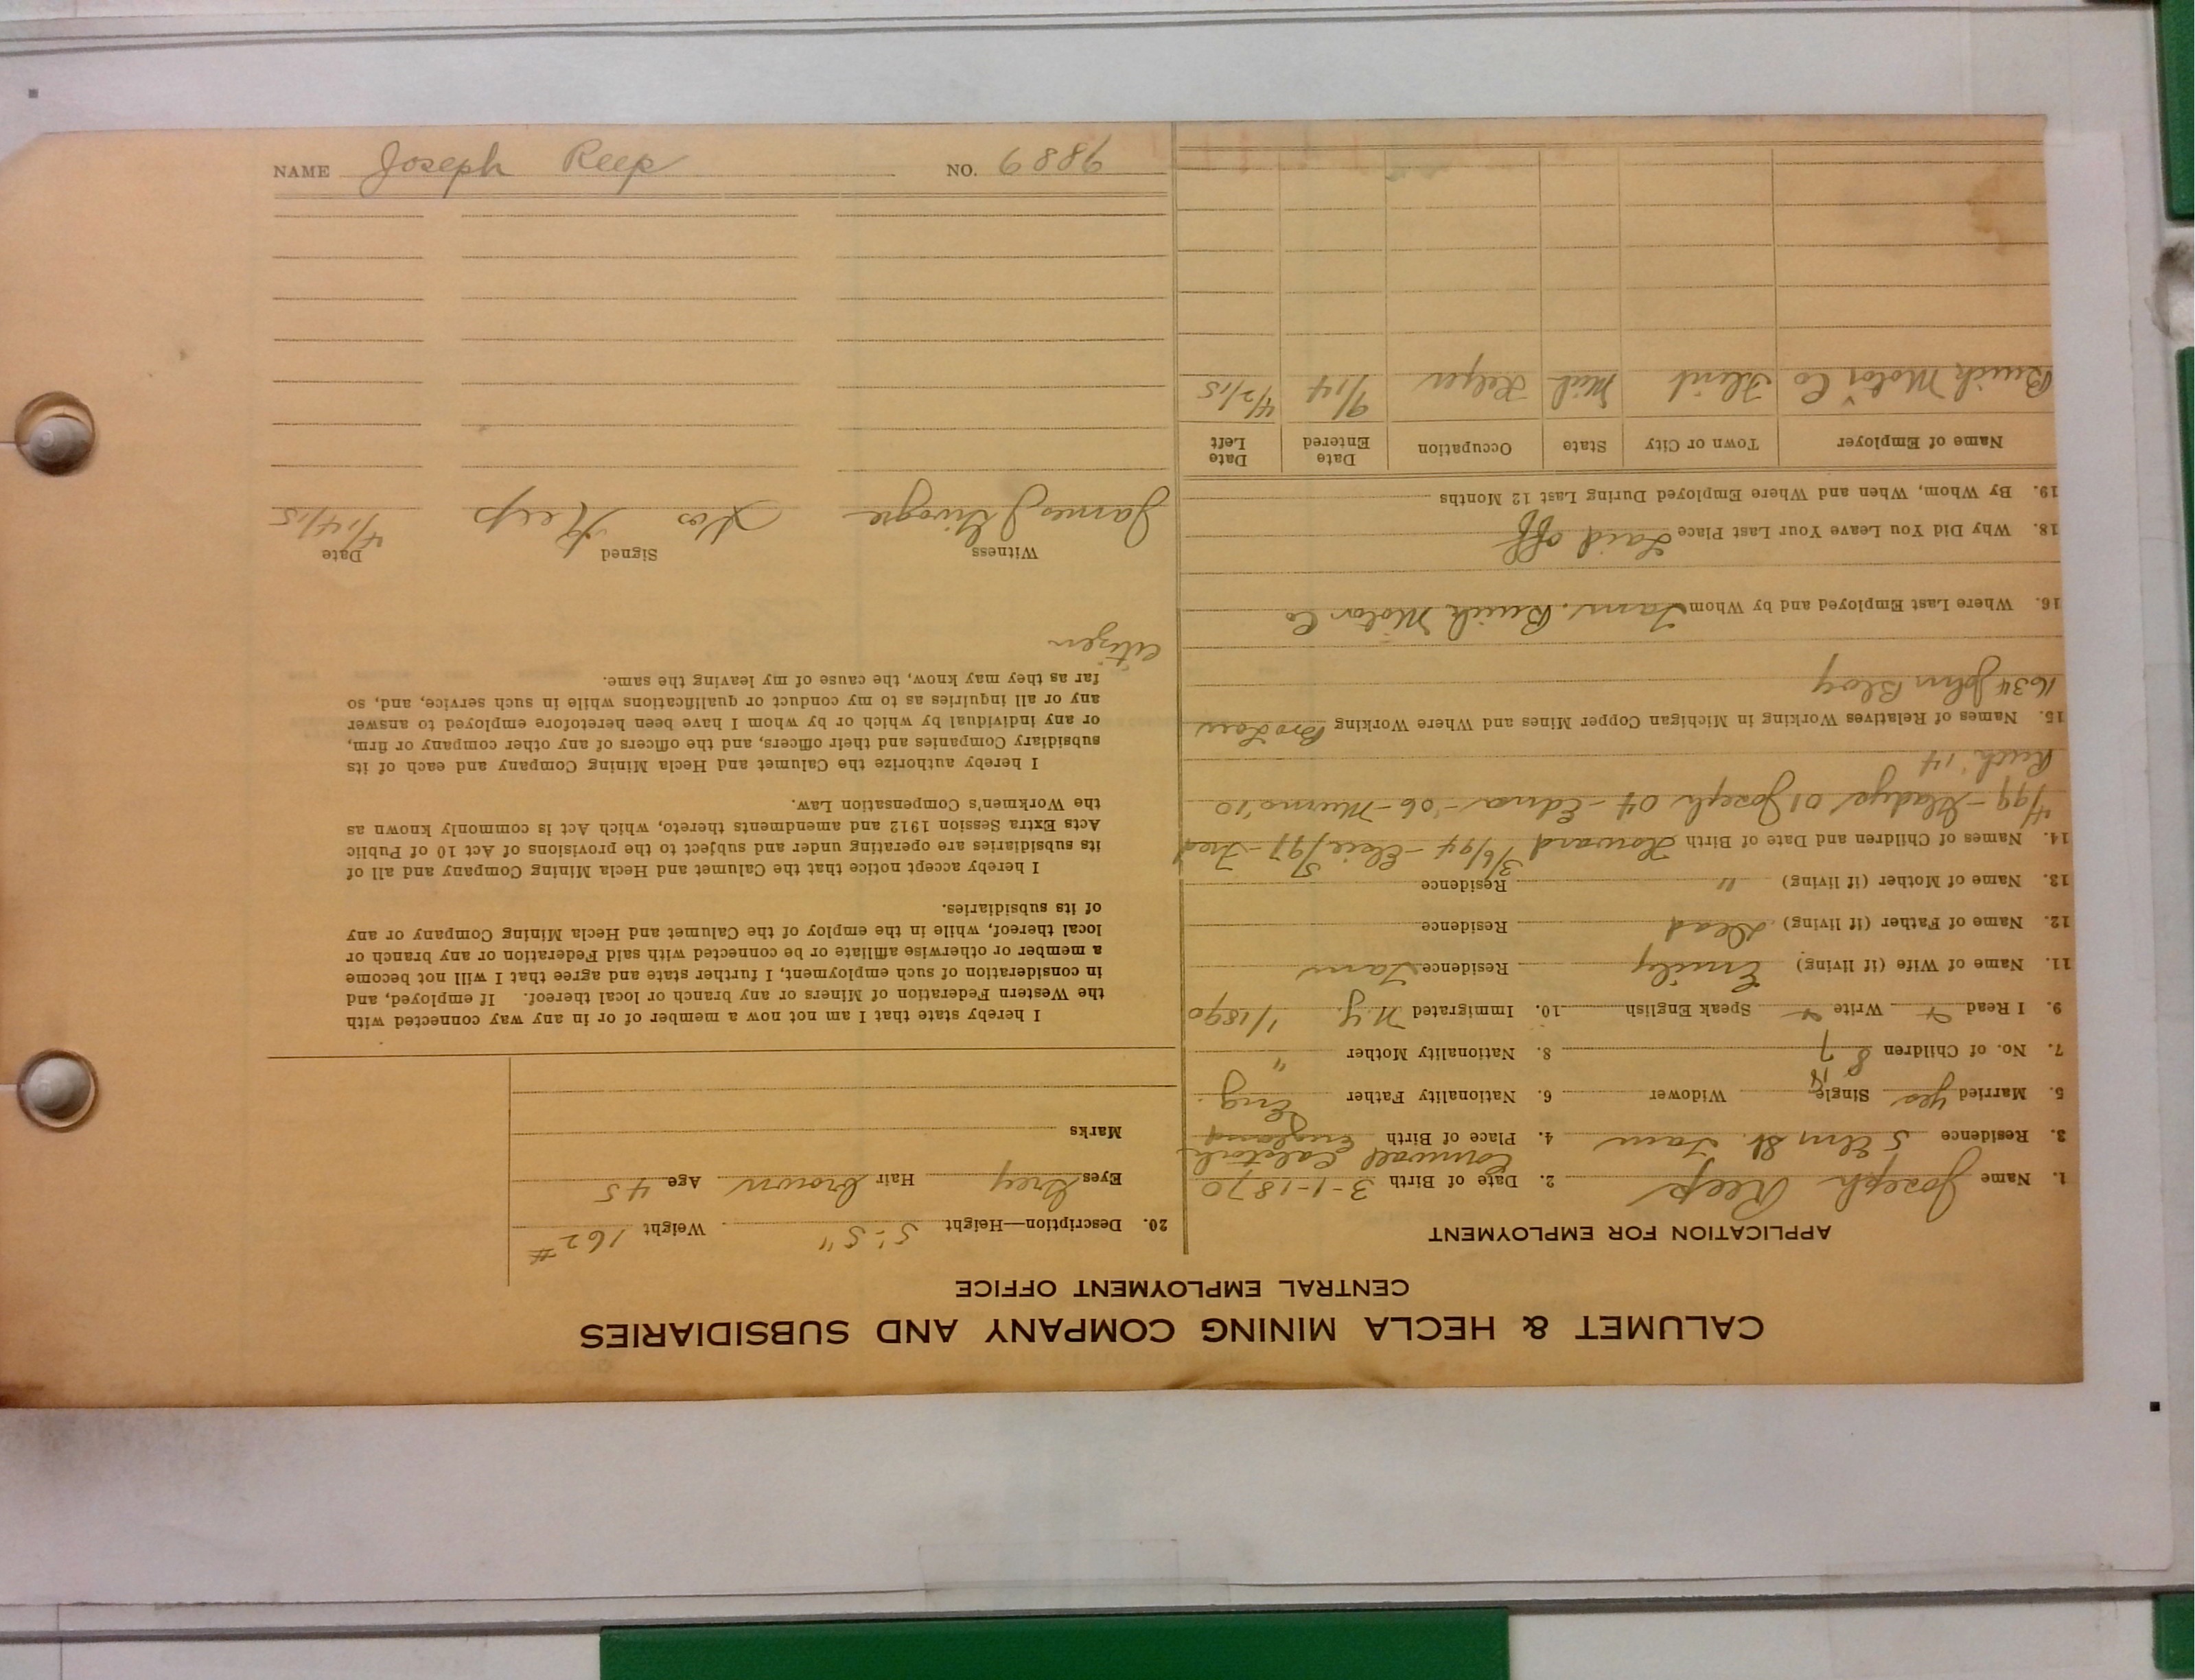 CALUMET & HECLA MINING COMPANY AND SUBSIDIARIES
CENTRAL EMPLOYMENT OFFICE
APPLICATION FOR EMPLOYMENT
1. Name Joseph Reep 2. Date of Birth 3-1-1870
3. Residence 5 Elm St. 4. Place of Birth Cornwall England
5. Married yes Single Widower 6. Nationality Father Eng.
7. No. of Children 8 8. Nationality Mother "
9. I Read Write Speak English 10. Immigrated N.Y. 1/1890
11. Name of Wife (if living) Emily Residence
12. Name of Father (if living) Dead Residence
13. Name of Mother (if living) " Residence
14. Names of Children and Date of Birth Howard 3/6/94 - Elsie 5/97 - Fred
4/99 - Gladys 01 Joseph 04 - Edna - '06 - '10
'14
15. Names of Relatives Working in Michigan Copper Mines and Where Working Bro Law
1634 John Bloy
16. Where Last Employed and by Whom Buick Motor Co
18. Why Did You Leave Your Last Place Laid off
19. By Whom, When and Where Employed During Last 12 Months
Name of Employer Town or City State Occupation Date Entered Date Left
Buick Motor Co Flint Mich Helper 9/14 4/2/15
20. Description—Height 5'-5" Weight 162#
Eyes Grey Hair brown Age 45
Marks
I hereby state that I am not now a member of or in any way connected with
the Western Federation of Miners or any branch or local thereof. If employed, and
in consideration of such employment, I further state and agree that I will not become
a member or otherwise affiliate or be connected with said Federation or any branch or
local thereof, while in the employ of the Calumet and Hecla Mining Company or any
of its subsidiaries.
I hereby accept notice that the Calumet and Hecla Mining Company and all of
its subsidiaries are operating under and subject to the provisions of Act 10 of Public
Acts Extra Session 1912 and amendments thereto, which Act is commonly known as
the Workmen's Compensation Law.
I hereby authorize the Calumet and Hecla Mining Company and each of its
subsidiary Companies and their officers, and the officers of any other company or firm,
or any individual by which or by whom I have been heretofore employed to answer
any or all inquiries as to my conduct or qualifications while in such service, and, so
far as they may know, the cause of my leaving the same.
citizen
Witness Signed Date
James J Jos Reep 4/14/15
NAME Joseph Reep NO. 9889